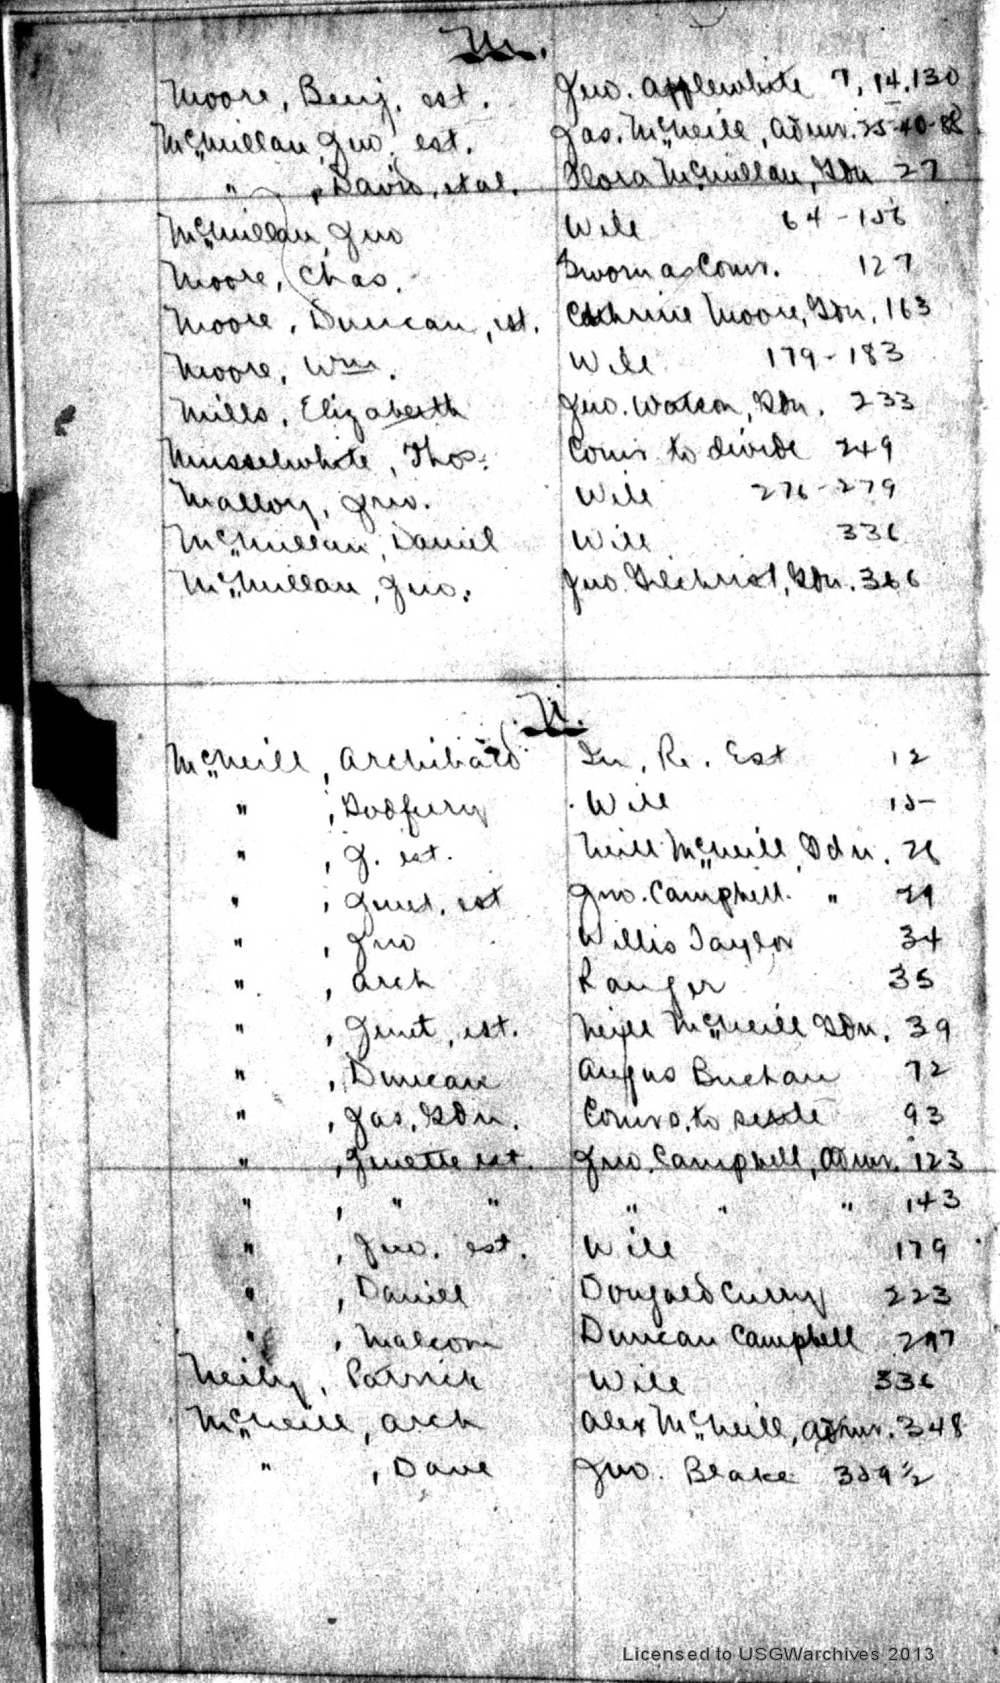 M.
Moore, Benj. est. Jno. Applewhite 7, 14, 130
McMillan, Jno. est. Jas. McNeill, Admr. 25-40-88
" , David, et al. Flora McMillan, Gdn 27
McMillan, Jno Will 64-156
Moore, Chas. Sworn as Comr. 127
Moore, Duncan, est. Cathrine Moore, Gdn. 163
Moore, Wm. Will 179-183
Mills, Elizabeth Jno. Watson, Gdn. 233
Musselwhite, Thos. Comrs to divide 249
Malloy, Jno. Will 276-279
McMillan, Daniel Will 336
McMillan, Jno. Jno. Gilchrist, Gdn. 366
N.
McNeill, Archibald In. Re. Est 12
" , Godfrey Will 15
" , J. est. Neill McNeill, Gdn. 26
" , Jenet, est Jno. Campbell " 29
" , Jno Willis Taylor 34
" , Arch Ranger 35
" , Jenet, est. Neill McNeill Gdn. 39
" , Duncan Angus Buchan 72
" , Jas. Gdn. Comrs. to settle 93
" , Jenette est. Jno. Campbell, Admr. 123
" , " " " " " 143
" , Jno. est. Will 179
" , Daniel Dougald Curry 223
" , Malcom Duncan Campbell 297
Neily, Patrick Will 336
McNeill, Arch Alex McNeill, Admr. 348
" , Dave Jno. Blake 359½
Licensed to USGWarchives 2013